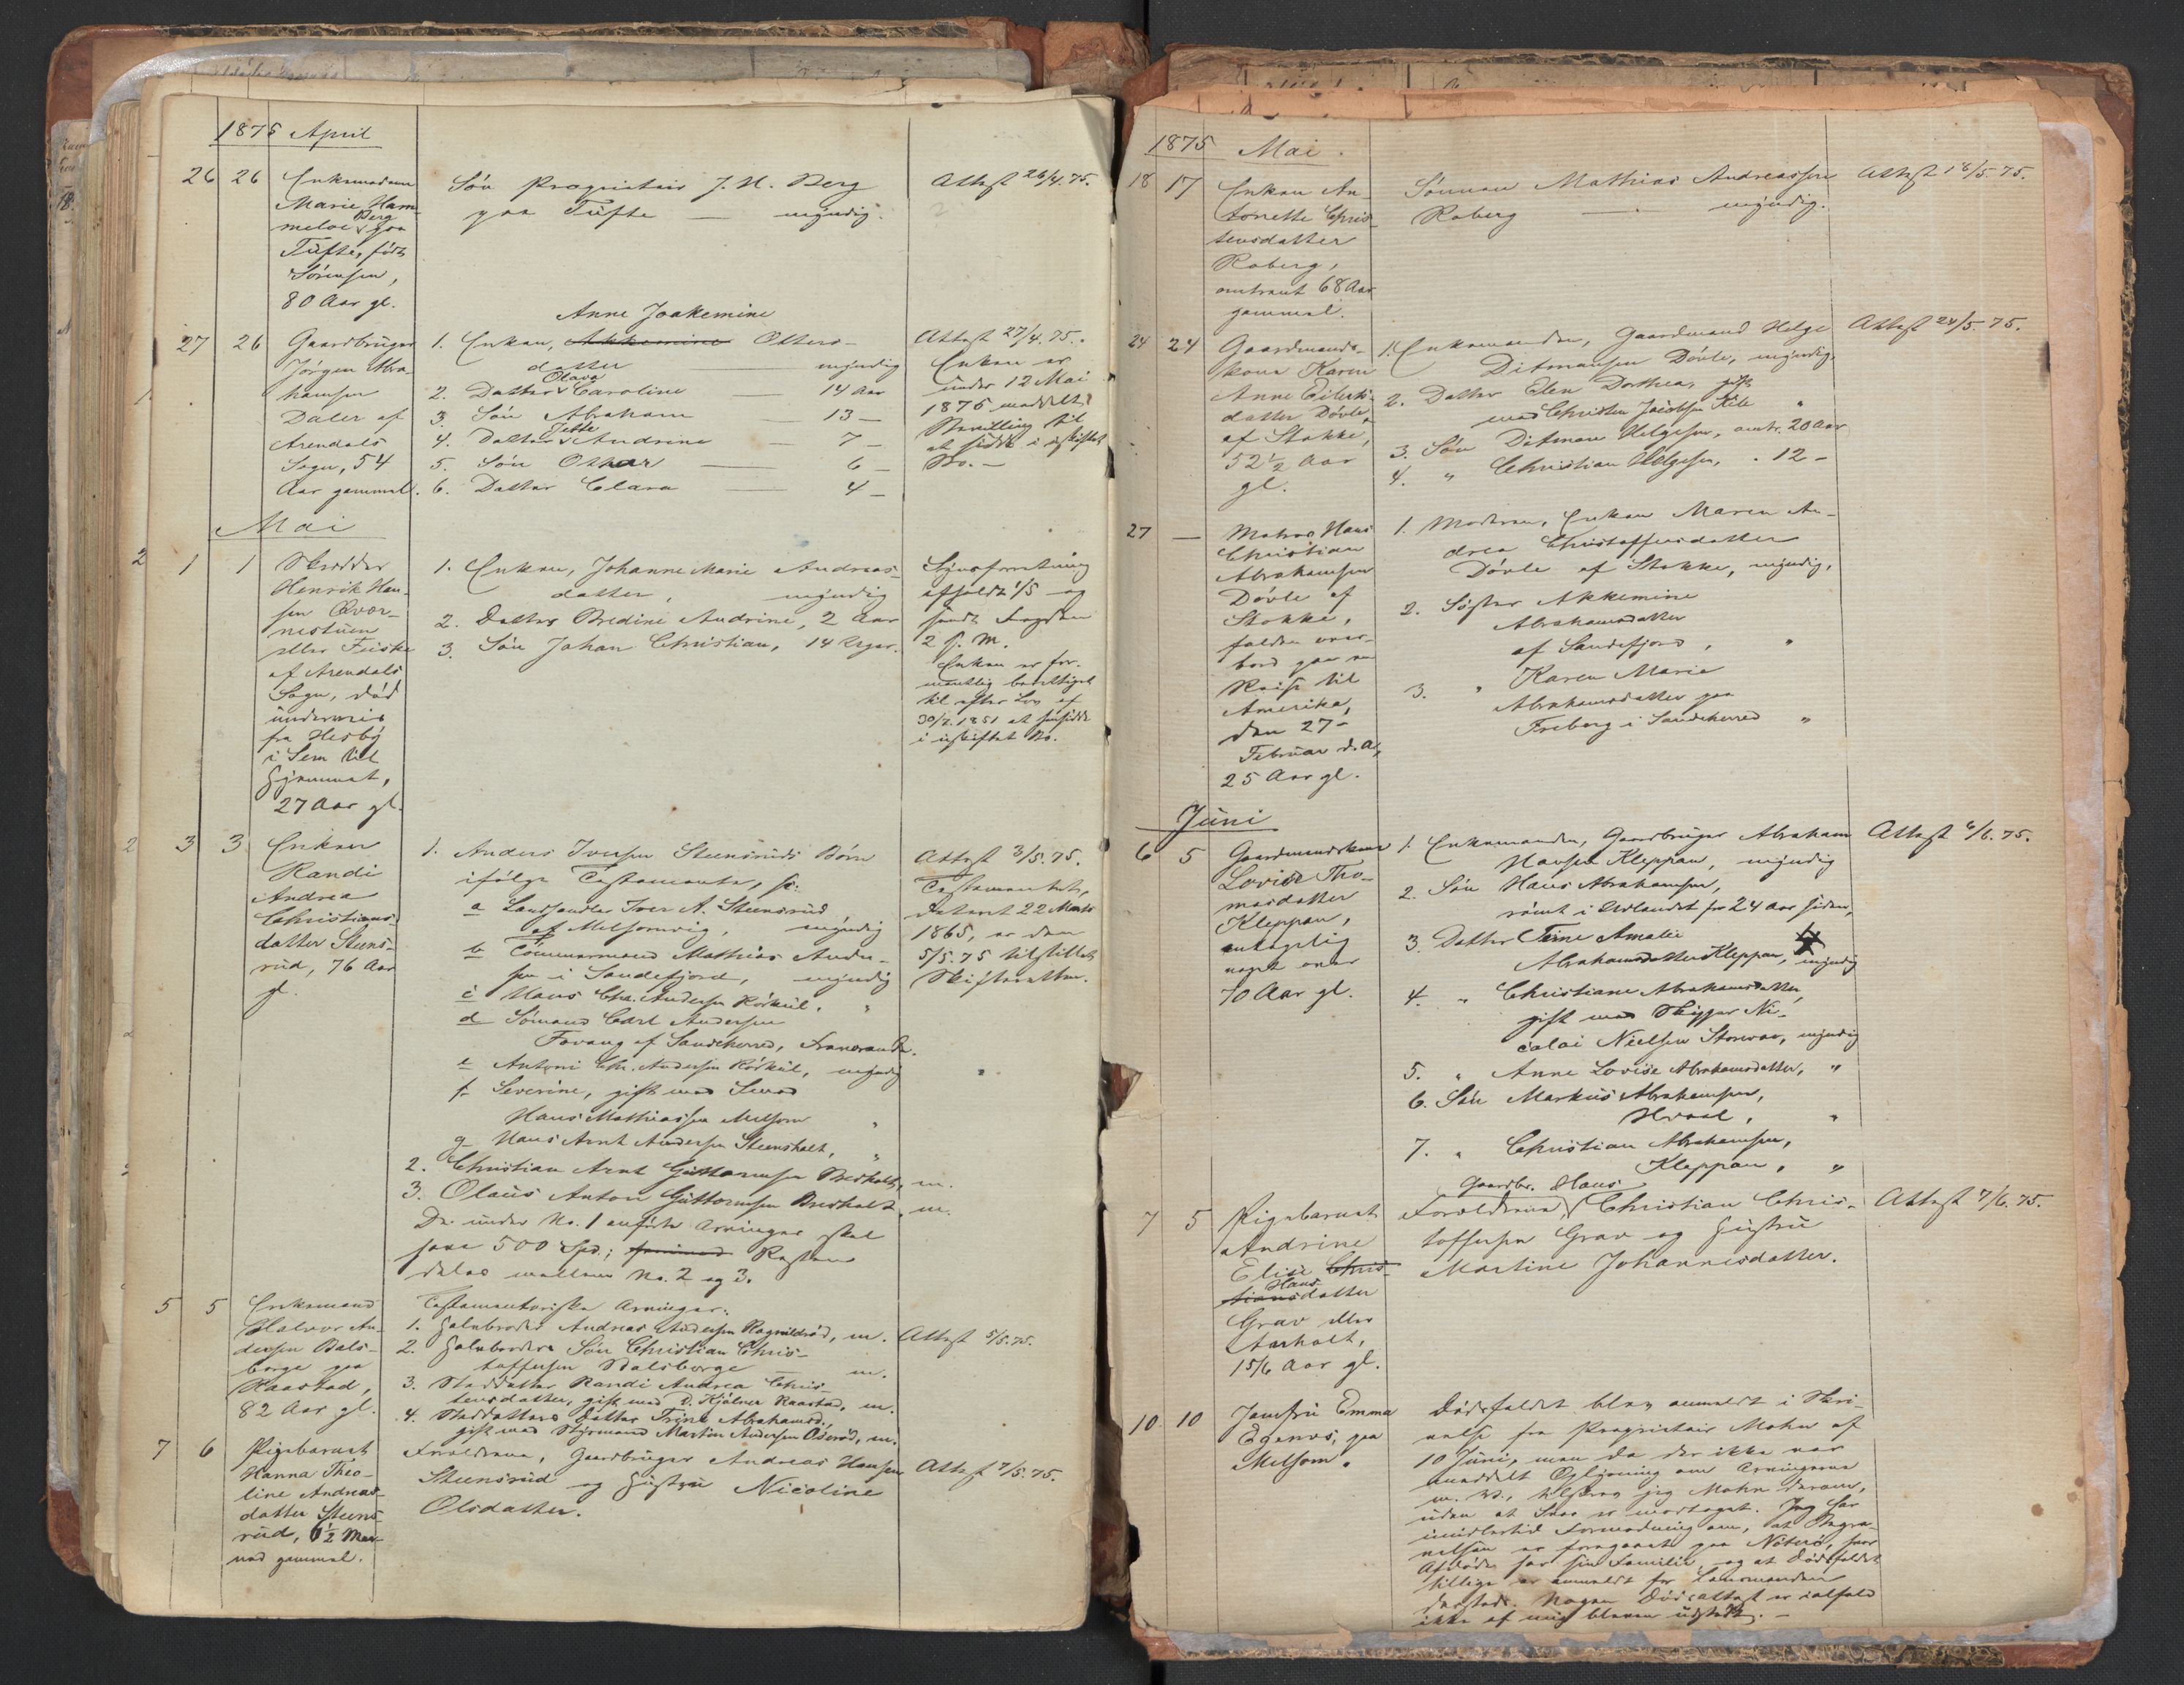 1875 April
26 26 Enkemadam
Marie Ham-
meloe Berg paa
Tufte, født
Sørensen,
80 Aar gl.
Søn Proprietair J. N. Berg
paa Tufte — myndig.
Attest 26/4. 75.
27 26 Gaardbruger
Jørgen Abra-
hamsen
Daler af
Arendals
Sogn, 54
Aar gammel.
Anne Joakemine
1. Enken, Akkemine Otters-
datter — myndig
2. Datter Olava Caroline — 14 Aar
3. Søn Abraham — 13 —
4. Datter Andrine — 7 —
5. Søn Othar — 6 —
6. Datter Clara — 4 —
Attest 27/4. 75.
Enken er
under 12 Mai
1875 meddelt
Bevilling til
at sidde i uskiftet
Bo. —
Mai
1 1 Skrædder
Henrik Han-
sen
eller Feiske
af Arendals
Sogn, død
underveis
fra Hesby
i Sem til
Hjemmet,
27 Aar gl.
1. Enken, Johanne Marie Andreas-
datter, myndig
2. Datter Bredine Andrine, 2 Aar
3. Søn Johan Christian, 14 Uger.
Synsforretning
afholdt 1/5 og
sendt Fogden
2 s. M.
Enken er for-
mentlig berettiget
til efter Lov af
30/7. 1851 at hensidde
i uskiftet Bo.
3 3 Enken
Randi
Andrea
Christians-
datter Steens-
rud, 76 Aar
gl.
1. Anders Iversen Steensruds Børn
ifølge Testamente, sc:
a Landhandler Iver A. Steensrud
af Melsomvig, myndig
b Tømmermand Mathias Ander-
sen i Sandefjord, myndig
c Hans Chr. Andersen Rørkul, "
d Sømand Carl Andersen
Fevang af Sandeherred, fraværende.
e Antoni Chr. Andersen Rørkul, myndig
f Severine, gift med Smed
Hans Mathiassen Melsom "
g Hans Arnt Andersen Steensholt, "
2. Christian Arnt Guttormsen Bredholt, m.
3. Olaus Anton Guttormsen Bredholt, m.
De under No. 1 anførte Arvinger skal
have 500 Spd.; Resten
deles mellem No. 2 og 3.
Attest 3/5. 75.
Testamentet,
dateret 22 Marts
1865, er den
5/5. 75 tilstillet
Skifteretten.
5 5 Enkemand
Halvor An-
dersen Bals-
berge paa
Raastad,
82 Aar gl.
Testamentariske Arvinger:
1. Halvbroder Andreas Andersen Ragnildrød, m.
2. Halvbroders Søn Christian Chris-
toffersen Walsberge — m.
3. Steddatter Randi Andrea Chris-
tensdatter, gift med O. Hjalmer Raastad, m.
4. Steddatters Datter Trine Abrahamsd.,
gift med Styrmand Martin Andersen Oserød, m.
Attest 5/5. 75.
7 6 Pigebarnet
Hanna Theo-
line Andreas-
datter Steens-
rud, 1½ Maa-
ned gammel.
Forældrene, Gaardbruger Andreas Hansen
Steensrud og Hustru Nicoline
Olsdatter.
Attest 7/5. 75.
1875 Mai.
18 17 Enken An-
tonette Chris-
tensdatter
Raberg,
omtrent 68 Aar
gammel.
Sønnen Mathias Andreassen
Raberg — myndig.
Attest 18/5. 75.
24 24 Gaardmands-
kone Karen
Anne Eilerts-
datter Døvle
af Stokke,
52½ Aar
gl.
1. Enkemanden, Gaardmand Helge
Ditmansen Døvle, myndig.
2. Datter Elen Dorthea, gift
med Christen Jacobsen Kile "
3. Søn Ditman Helgesen, omtr. 20 Aar
4. " Christian Helgesen, " 12 —
Attest 24/5. 75.
27 — Matros Hans
Christian
Abrahamsen
Døvle af
Stokke,
falden over-
bord paa en
Reise til
Amerika,
den 27-
Februar d. A.,
25 Aar gl.
1. Moderen, Enken Maren An-
drea Christoffersdatter
Døvle af Stokke, myndig.
2. Søster Akkemine
Abrahamsdatter
af Sandefjord, "
3. " Karen Marie
Abrahamsdatter paa
Freberg i Sandeherred "
Juni
6 5 Gaardmandskone
Lovise Tho-
masdatter
Kleppan,
antagelig
noget over
70 Aar gl.
1. Enkemanden, Gaardbruger Abraham
Hansen Kleppan, myndig
2. Søn Hans Abrahamsen,
rømt i Udlandet for 24 Aar siden,
3. Datter Trine Amalie
Abrahamsdatter Kleppan, myndig
4. " Christiane Abrahamsdatter,
gift med Skipper Ni-
colai Nielsen Storevar, myndig
5. " Anne Lovise Abrahamsdatter, "
6. Søn Markus Abrahamsen,
Hvaal, "
7. " Christian Abrahamsen,
Kleppan, "
Attest 6/6. 75.
7 5 Pigebarnet
Andrine
Elise Chris-
tiansdatter Hans
Grav eller
Aarholt,
15/6 Aar gl.
Gaardbr. Hans
Forældrene, Christian Chris-
toffersen Grav og Hustru
Martine Johannesdatter.
Attest 7/6. 75.
10 10 Jomfru Emma
Egenæs, paa
Melsom.
Dødsfaldet blev anmeldt i Skri-
velse fra Proprietair Mohn af
10 Juni, men da der ikke var
meddelt Oplysning om Arvingerne
m. V., tilskrev jeg Mohn derom,
uden at Svar er modtaget. Jeg har
imidlertid Formodning om, at Begra-
velsen er foregaaet paa Nøterø, hvor
Afdøde har sin Familie, og at Dødsfaldet
tillige er anmeldt for Lensmanden
dersteds. Nogen Dødsattest er ialfald
ikke af mig bleven udstedt. —